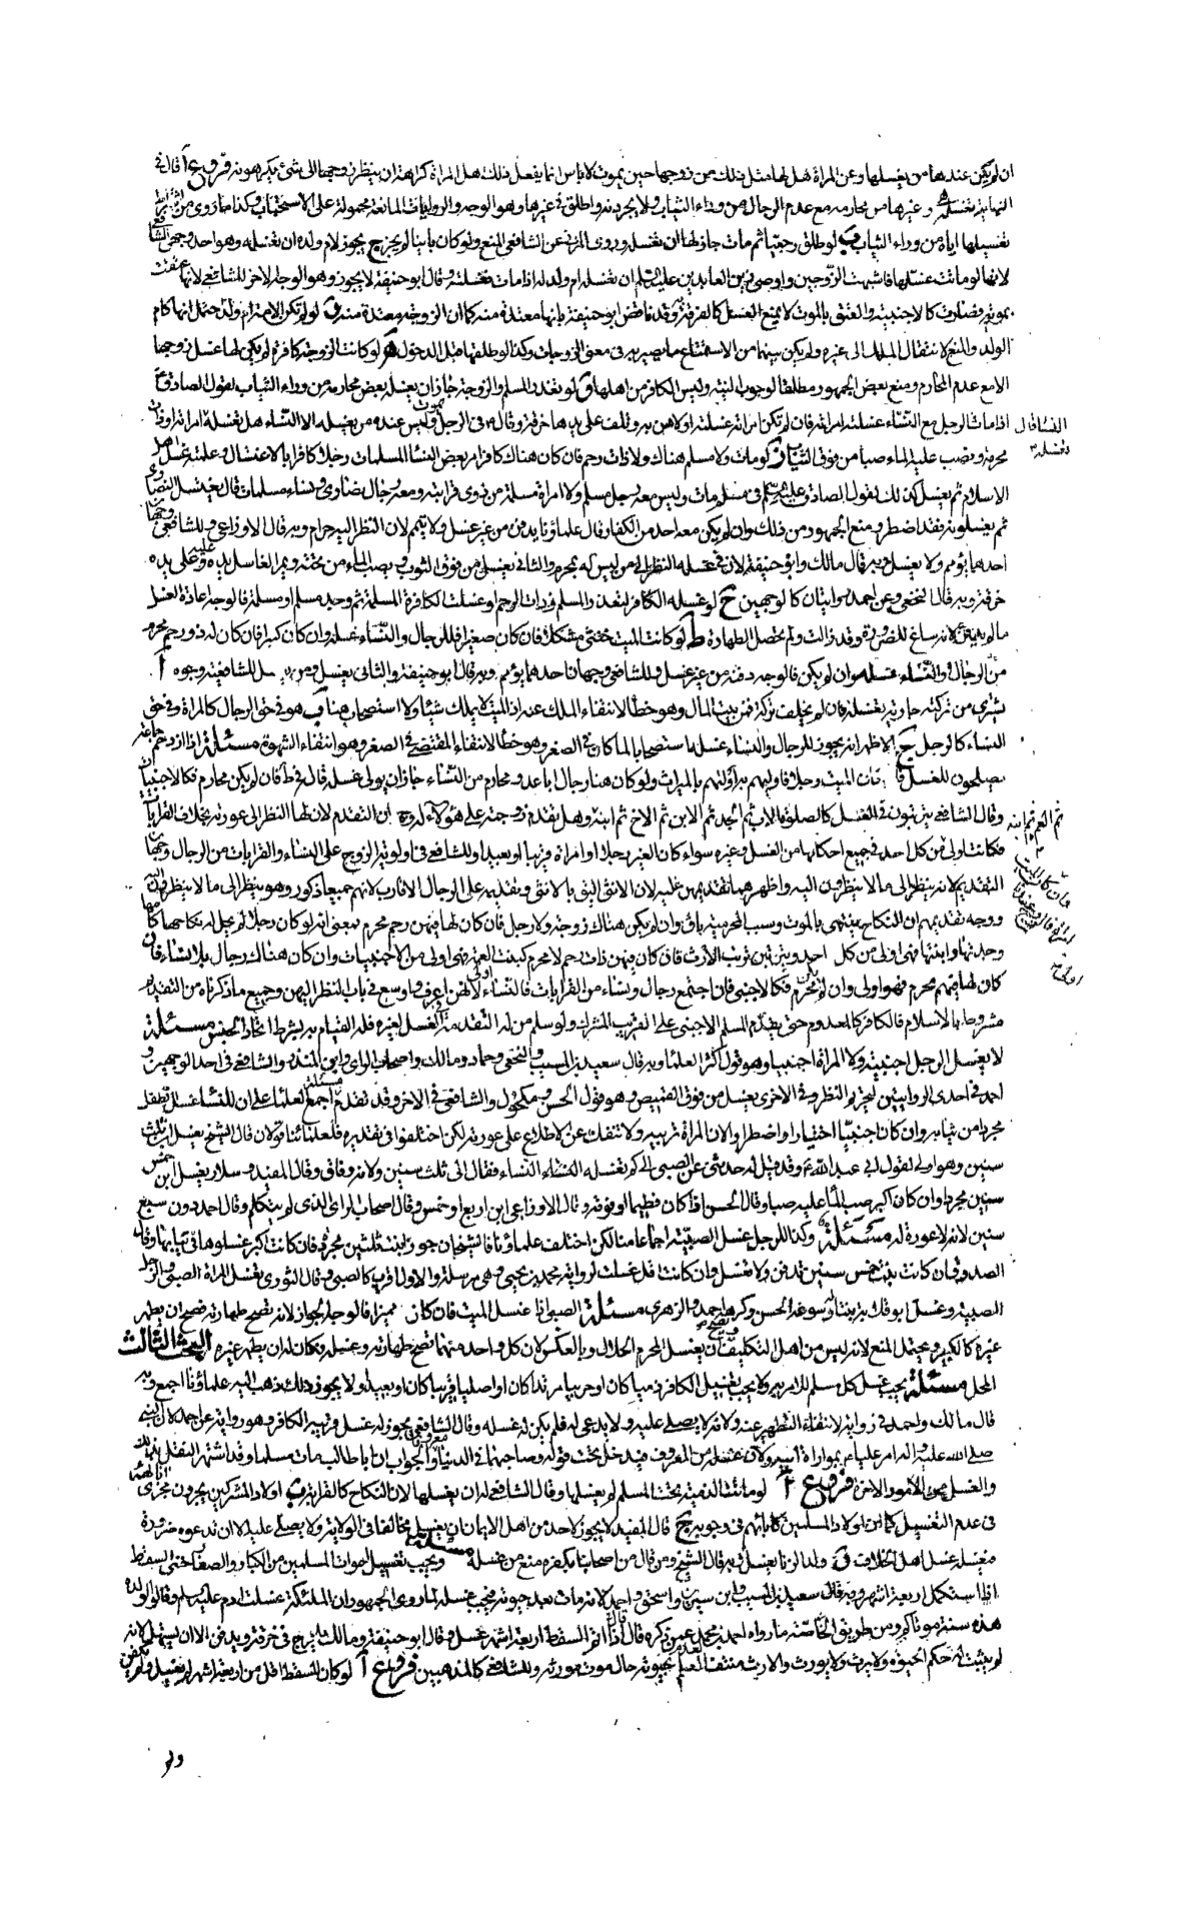 ان لم يكن عندها من يغسلها وعن المراة هل لها مثل ذلك من زوجها حين يموت لا باس انما يفعل ذلك اهل المراة كراهة ان ينظر زوجها الى شئ يكرهونه فروع ا قال في
النهاية تغسله وغيرها من محارمه مع عدم الرجال من وراء الثياب ولا يجردنه واطلق في غيرها وهو الوجه والروايات المانعة محمولة على الاستحباب وكذا ما روى من
تغسيلها اياه من وراء الثياب ب لو طلق رجعيا ثم مات جاز لها ان تغسله وروى المزني عن الشافعي المنع ولو كان باينا لم يجز ج يجوز لام ولده ان تغسله وهو احد وجهي الشافعي
لانها لو ماتت غسلها فاشبهت الزوجين واوصى زين العابدين عليه السلم ان تغسله ام ولد له اذا مات فغسلته وقال ابو حنيفة لا يجوز وهو الوجه الاخر للشافعي لانها عتقت
بموته فصارت كالاجنبية والعتق بالموت لا يمنع الغسل كالفرقة به وقد ناقض ابو حنيفة بانها معتدة منه كما ان الزوجة معتدة منه د لو لم تكن الامة ام ولد احتمل انها كام
الولد والمنع لانتقال الملك الى غيره ولم يكن بينهما من الاستمتاع ما يصير به في معنى الزوجات وكذا لو طلقها قبل الدخول ه لو كانت الزوجة كافرة لم يكن لها غسل زوجها
الا مع عدم المحارم ومنع بعض الجمهور مطلقا لوجوب النية وليس الكافر من اهلها و لو فقد المسلم والزوجة جاز ان يغسله بعض محارمه من وراء الثياب لقول الصادق ع
اذا مات الرجل مع النساء غسلته امراته فان لم تكن امراته غسلته اولاهن به وتلف على يدها خرقة وقال في الرجل يموت وليس عنده من يغسله الا النساء هل تغسله امراته او ذات
محرمه وتصب عليه الماء صبا من فوق الثياب ز لو مات ولا مسلم هناك ولا ذات رحم فان كان هناك كافر امر بعض النساء المسلمات رجلا كافرا بالاغتسال وعلمته غسل اهل
الاسلام ثم يغسل كذلك لقول الصادق عليه السلم في مسلم مات وليس معه رجل مسلم ولا امراة مسلمة من ذوي قرابته ومعه رجال نصارى ونساء مسلمات قال يغتسل النصارى
ثم يغسلونه فقد اضطر ومنع الجمهور من ذلك وان لم يكن معه احد من الكفار قال علماؤنا يدفن من غير غسل ولا تيمم لان النظر اليه حرام وبه قال الاوزاعي وللشافعي وجهان
احدهما يؤمم ولا يغسل وبه قال مالك وابو حنيفة لان في غسله النظر الى من ليس له بمحرم والثاني يغسل من فوق الثوب ويصب الماء من تحته ويمر الغاسل يده وعلى يده
خرقة وبه قال النخعي وعن احمد روايتان كالوجهين ح لو غسله الكافر لفقد المسلم وذات الرحم او غسلت الكافرة المسلمة ثم وجد مسلم او مسلمة فالوجه اعادة الغسل
ما لم يدفن لانه ساغ للضرورة وقد زالت ولم تحصل الطهارة ط لو كانت الميت خنثى مشكلا فان كان صغيرا فللرجال والنساء غسله وان كان كبيرا فان كان له ذو رحم محرم
من الرجال والنساء غسله وان لم يكن فالوجه دفنه من غير غسل وللشافعي وجهان احدهما يؤمم وبه قال ابو حنيفة والثاني يغسل للشافعية وجوه ا
يشترى من تركته جارية تغسله فان لم يخلف تركة فمن بيت المال وهو خطأ لانتفاء الملك عنه اذ الميت لا يملك شيئا ولا استصحاب هنا ب هو في حق الرجال كالمراة وفي حق
النساء كالرجل ج الاظهر انه يجوز للرجال والنساء غسله استصحابا لما كان في الصغر وهو خطأ لانتفاء المقتضي في الصغر وهو انتفاء الشهوة مسئلة اذا ازدحم جماعة
يصلحون للغسل فان كان الميت رجلا فاولهم به اولاهم بالميراث ولو كان هنا رجال اباعد ومحارم من النساء جاز ان يولى غسله قال في ط فان لم يكن محارم فكالاجنبيات
وقال الشافعي يترتبون في الغسل كالصلوة الاب ثم الجد ثم الابن ثم الاخ ثم ابنه وهل تقدم زوجته على هؤلاء له وجهان التقدم لان لها النظر الى عورته بخلاف القرابات
فكانت اولى من كل احد في جميع احكامها من الغسل وغيره سواء كان الغير رجلا او امراة قريبا او بعيدا وللشافعي في اولوية الزوج على النساء والقرابات من الرجال وجهان
التقديم لانه ينظر الى ما لا ينظرن اليه واظهرهما تقديمهن عليه لان الانثى اليق بالانثى وتقدمه على الرجال الاقارب لانهم جميعا ذكور وهو ينظر الى ما لا ينظرون اليه
ووجه تقديمهم ان النكاح ينتهي بالموت وسبب المحرمية باق وان لم يكن هناك زوجة ولا رجل فان كان لها فيهن رحم محرم بمعنى انه لو كان رجلا لم يحل له نكاحها كامها
وجدتها وابنتها فهى اولى من كل احد ويترتبن ترتب الارث فان كان فيهن ذات رحم لا محرم كبنت العم فهى اولى من الاجنبيات وان كان هناك رجال بلا نساء فان
كان لها فيهم محرم فهو اولى وان لم يكن محرم فكالاجنبي فان اجتمع رجال ونساء من القرابات فالنساء اولى لانهن اعرف واوسع في باب النظر اليهن وجميع ما ذكرنا من التقديم
مشروط بالاسلام فالكافر كالمعدوم حتى يقدم المسلم الاجنبي على القريب المشرك ولو سلم من له التقدمة الغسل لغيره فله القيام به بشرط اتحاد الجنس مسئلة
لا يغسل الرجل اجنبية ولا المراة اجنبيا وهو قول اكثر العلماء وبه قال سعيد بن المسيب والنخعي وحماد ومالك واصحاب الراي وابن المنذر والشافعي في احد الوجهين و
احمد في احدى الروايتين لتحريم النظر وفي الاخرى يغسل من فوق القميص وهو قول الحسن ومكحول والشافعي في الاخر وقد تقدم مسئلة اجمع العلماء على ان للنساء غسل الطفل
مجردا من ثيابه وان كان اجنبيا اختيارا واضطرارا لان المراة تربيه ولا تنفك عن الاطلاع على عورته لكن اختلفوا في تقديره فلعلمائنا قولان قال الشيخ يغسل ابن ثلث
سنين وهو اولى لقول ابي عبد الله ع وقد قيل له حدثني عن الصبي الى كم تغسله النساء فقال الى ثلث سنين ولانه وفاق وقال المفيد وسلار يغسل ابن خمس
سنين مجردا وان كان اكبر صب الماء عليه صبا وقال الحسن اذا كان فطيما او فوقه وقال الاوزاعي ابن اربع او خمس وقال اصحاب الراى الذى لم يتكلم وقال احمد دون سبع
سنين لانه لا عورة له مسئلة وكذا للرجل غسل الصبية اجماعا منا لكن اختلف علماؤنا فالشيخان جوزا بنت ثلث سنين مجردة فان كانت اكبر غسلوها في ثيابها وقال
الصدوق ان كانت بنت خمس سنين تدفن ولا تغسل وان كانت اقل غسلت لرواية محمد بن يحيى وهى مرسلة والاول اقرب كالصبي وقال الثوري تغسل المراة الصبي والرجل
الصبية وغسل ابو قلابة بنته وسوغه الحسن وكرهه احمد والزهري مسئلة الصبي اذا غسل الميت فان كان مميزا فالوجه الجواز لانه تصح طهارته فصح ان يطهر
غيره كالكبير ويحتمل المنع لانه ليس من اهل التكليف ويصح ان يغسل المحرم الحلال وبالعكس لان كل واحد منهما تصح طهارته وغسله فكان له ان يطهر غيره البحث الثالث
المحل مسئلة يجب غسل كل مسلم للامر به ولا يجب تغسيل الكافر ذميا كان او حربيا مرتدا كان او اصليا قريبا كان او بعيدا ولا يجوز ذلك ذهب اليه علماؤنا اجمع وبه
قال مالك واحمد في رواية لانتفاء التطهير عنه ولانه لا يصلى عليه ولا يدعى له فلم يكن له غسله وقال الشافعي يجوز له غسل قريبه الكافر وهو رواية عن احمد لان النبي
صلى الله عليه واله امر عليا ع بمواراة ابيه ولان غسله من المعروف فيدخل تحت قوله وصاحبهما في الدنيا معروفا والجواب ان ابا طالب مات مسلما وقد اشتهر النقل بذلك
والغسل من الامور الاخروية فروع ا لو ماتت الذمية تحت المسلم لم يغسلها وقال الشافعي له ان يغسلها لان النكاح كالقرابة ب اولاد المشركين يجرون مجرى ابائهم
في عدم التغسيل كما ان اولاد المسلمين كابائهم في وجوبه ج قال المفيد لا يجوز لاحد من اهل الايمان ان يغسل مخالفا في الولاية ولا يصلى عليه الا ان تدعوه ضرورة
فيغسله غسل اهل الخلاف د ولد الزنا يغسل وبه قال الشيخ ومن قال من اصحابنا بكفره منع من غسله مسئلة ويجب تغسيل اموات المسلمين من الكبار والصغار حتى السقط
اذا استكمل اربعة اشهر وبه قال سعيد بن المسيب وابن سيرين واسحق واحمد لانه مات بعد حيوته فيجب غسله لما روى الجمهور ان الملئكة غسلت ادم عليه السلم وقالوا لولده
هذه سنة موتاكم ومن طريق الخاصة ما رواه احمد بن محمد عمن ذكره قال اذا تم السقط اربعة اشهر غسل وقال ابو حنيفة ومالك يدرج في خرقة ويدفن الا ان يستهل لانه
لم يثبت له حكم الحيوة ولا يرث ولا يورث والارث منتف لعدم العلم بحيوته حال موت مورثه وللشافعي كالمذهبين فروع ا لو كان للسقط اقل من اربعة اشهر لم يغسل ولم يكفن
ولو